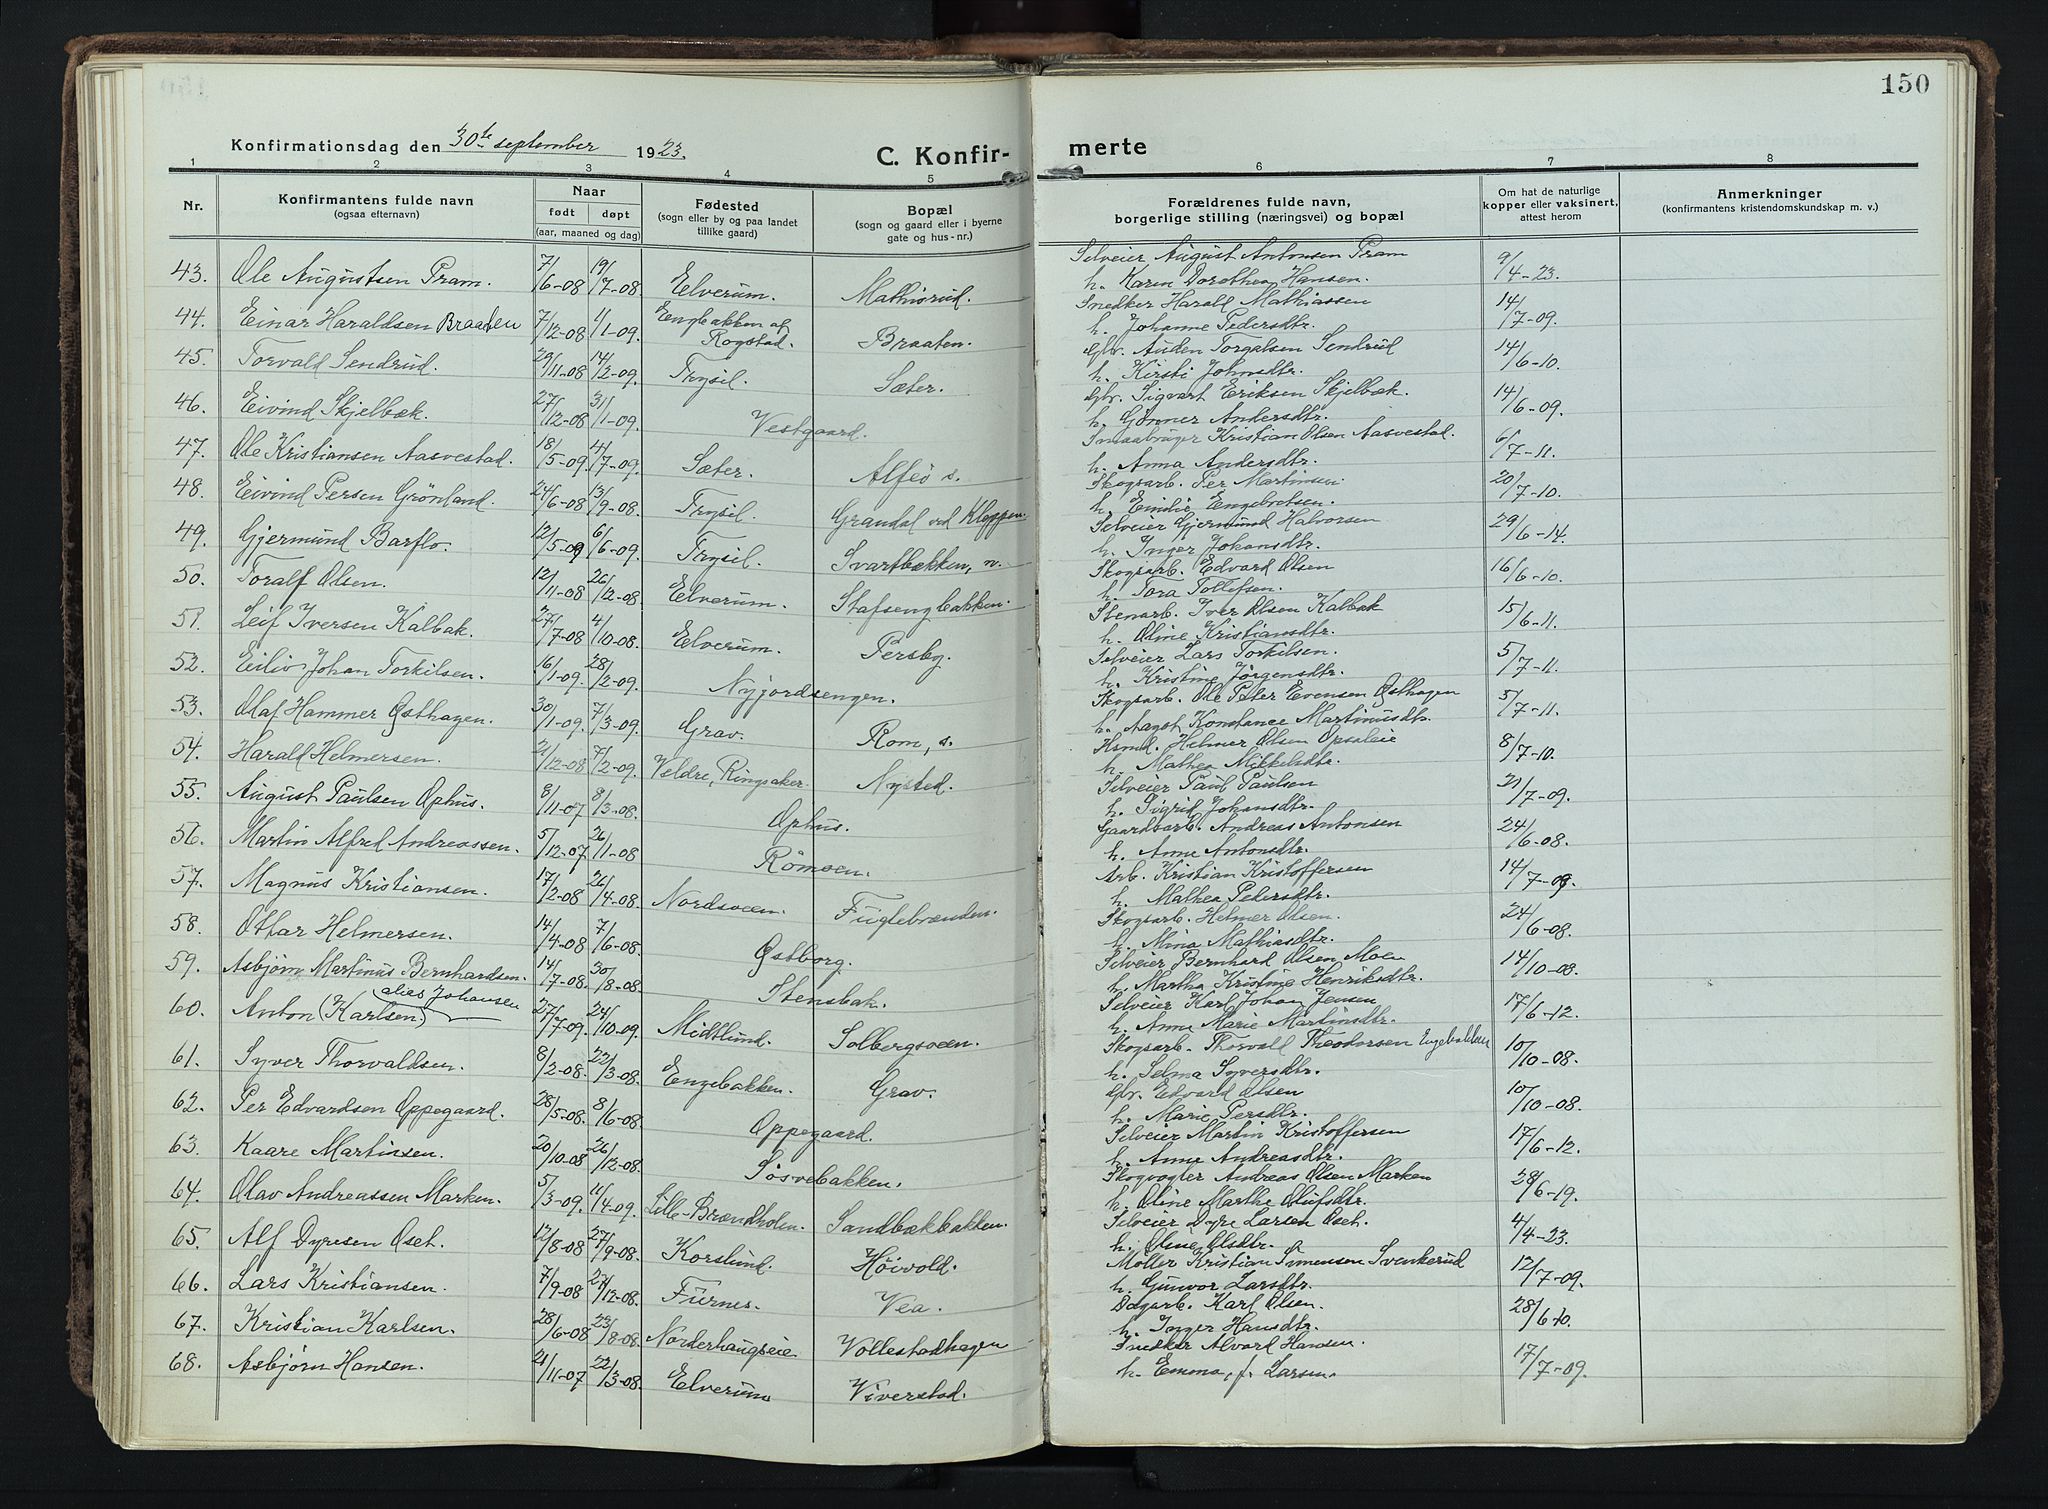 150
Konfirmationsdag den 30te september 1923. C. Konfir- merte
1 2 3 4 5 6 7 8
Nr. Konfirmantens fulde navn (ogsaa efternavn) Naar født døpt (aar, maaned og dag) Fødested (sogn eller by og paa landet tillike gaard) Bopæl (sogn og gaard eller i byerne gate og hus-nr.) Forældrenes fulde navn, borgerlige stilling (næringsvei) og bopæl Om hat de naturlige kopper eller vaksinert, attest herom Anmerkninger (konfirmantens kristendomskundskap m. v.)
43. Ole Augustsen Pram. 7/6-08 19/7-08. Elverum. Mathisrud. Selveier August Antonsen Pram 9/4-23.
h. Karen Dorothea Hansen.
44. Einar Haraldsen Braaten 7/12-08 1/1-09. Engbakken af Rogstad. Braaten. Snedker Harald Mathiassen 14/7-09.
h. Johanne Pedersdtr.
45. Torvald Sendrud. 29/11-08 14/2-09. Trysil. Sæter. Gbr. Auden Torgalsen Sendrud 14/6-10.
h. Kirsti Johnsdtr.
46. Eivind Skjelbæk. 27/12-08 31/1-09. Vestgaard. Gbr. Sigvart Eriksen Skjelbæk. 14/6-09.
h. Gönner Andersdtr.
47. Ole Kristiansen Aasvestad. 18/5-09 4/7-09. Sæter. Alfsö s. Smaabruger Kristian Olsen Aasvestad. 6/7-11.
h. Anna Andersdtr.
48. Eivind Persen Grönland. 24/6-08 13/9-08. Trysil. Grandal ved Kleppen. Skogsarb. Per Martinsen. 20/7-10.
h. Emilie Engebretsen.
49. Gjermund Barflo. 12/5-09 6/6-09. Trysil. Svartbækken, n. Selveier Gjermund Halvorsen 29/6-14.
h. Inger Johansdtr.
50. Toralf Olsen. 12/11-08 26/12-08. Elverum. Stafsengbakken. Skogsarb. Edvard Olsen 16/6-10.
h. Tora Tollefsen.
51. Leif Iversen Kalbæk. 27/7-08 4/10-08. Elverum. Persby. Stenarb. Iver Olsen Kalbæk 15/6-11.
h. Oline Kristiansdtr.
52. Eiliv Johan Torkilsen. 16/1-09. 28/2-09. Nyjordsengen. Selveier Lars Torkilsen. 5/7-11.
h. Kristine Jörgensdtr.
53. Olaf Hammer Østhagen. 30/1-09. 7/3-09. Grav. Rom, s. Skogsarb. Ole Peter Evensen Østhagen 5/7-11.
h. Aagot Konstance Martinusdtr.
54. Harald Helmersen. 21/12-08 7/2-09. Veldre, Ringsaker. Nysted. Hsmd. Helmer Olsen Opsaleie 8/7-10.
h. Mathea Mikkelsdtr.
55. August Paulsen Ophus. 8/11-07 8/3-08. Ophus. Selveier Paul Paulsen 21/7-09.
h. Sigrid Johansdtr.
56. Martin Alfred Andreassen. 5/12-07 26/1-08 Römoen. Gaardsarb. Andreas Antonsen 24/6-08.
h. Anne Antonsdtr.
57. Magnus Kristiansen. 17/2-08 26/4-08. Nordsveen. Fuglebrænden. Arb. Kristian Kristoffersen 14/7-09.
h. Mathea Pedersdtr.
58. Ottar Helmersen. 14/4-08 7/6-08. Østborg. Skogsarb. Helmer Olsen. 24/6-08.
h. Mina Mathiasdtr.
59. Asbjørn Martinus Bernhardsen. 14/7-08. 30/8-08. Stensbak. Selveier Bernhard Olsen Moen 14/10-08.
h. Martha Kristine Henriksdtr.
60. Anton (Karlsen) alias Johansen 27/7-09. 24/10-09. Midtlund. Solbergsveen. Selveier Karl Johan Jensen 17/6-12.
h. Anne Marie Martinsdtr.
61. Syver Thorvaldsen. 8/2-08. 22/3-08. Engebakken. Grav. Skogsarb. Thorvald Theodorsen Engebakken 10/10-08.
h. Selma Syversdtr.
62. Per Edvardsen Oppegaard. 28/5-08. 8/6-08. Oppegaard. Gbr. Edvard Olsen 10/10-08.
h. Marie Persdtr.
63. Kaare Martinsen. 20/10-08 26/12-08. Søsvebakken. Selveier Martin Kristoffersen 17/6-12.
h. Anne Andreasdtr.
64. Olav Andreassen Marken. 5/3-09. 11/4-09. Lille-Brændholen. Sandbækbakken. Skogvogter Andreas Olsen Marken 28/6-19.
h. Oline Marthe Olufsdtr.
65. Alf Dyresen Oset. 12/8-08 27/9-08. Korslund. Höivold. Selveier Dyre Larsen Oset. 4/4-23.
h. Oline Olsdtr.
66. Lars Kristiansen. 7/9-08 27/12-08. Furnes. Vea. Möller Kristian Simensen Svenkerud 12/7-09.
h. Gunvor Larsdtr.
67. Kristian Karlsen. 28/6-08 23/8-08. Norderhaugseie Vollestadhagen Dagarb. Karl Olsen. 28/6-10.
h. Inger Hansdtr.
68. Asbjørn Hansen. 21/11-07 22/3-08. Elverum Viverstad. Snedker Alvard Hansen. 17/7-09.
h. Emma, f. Larsen.